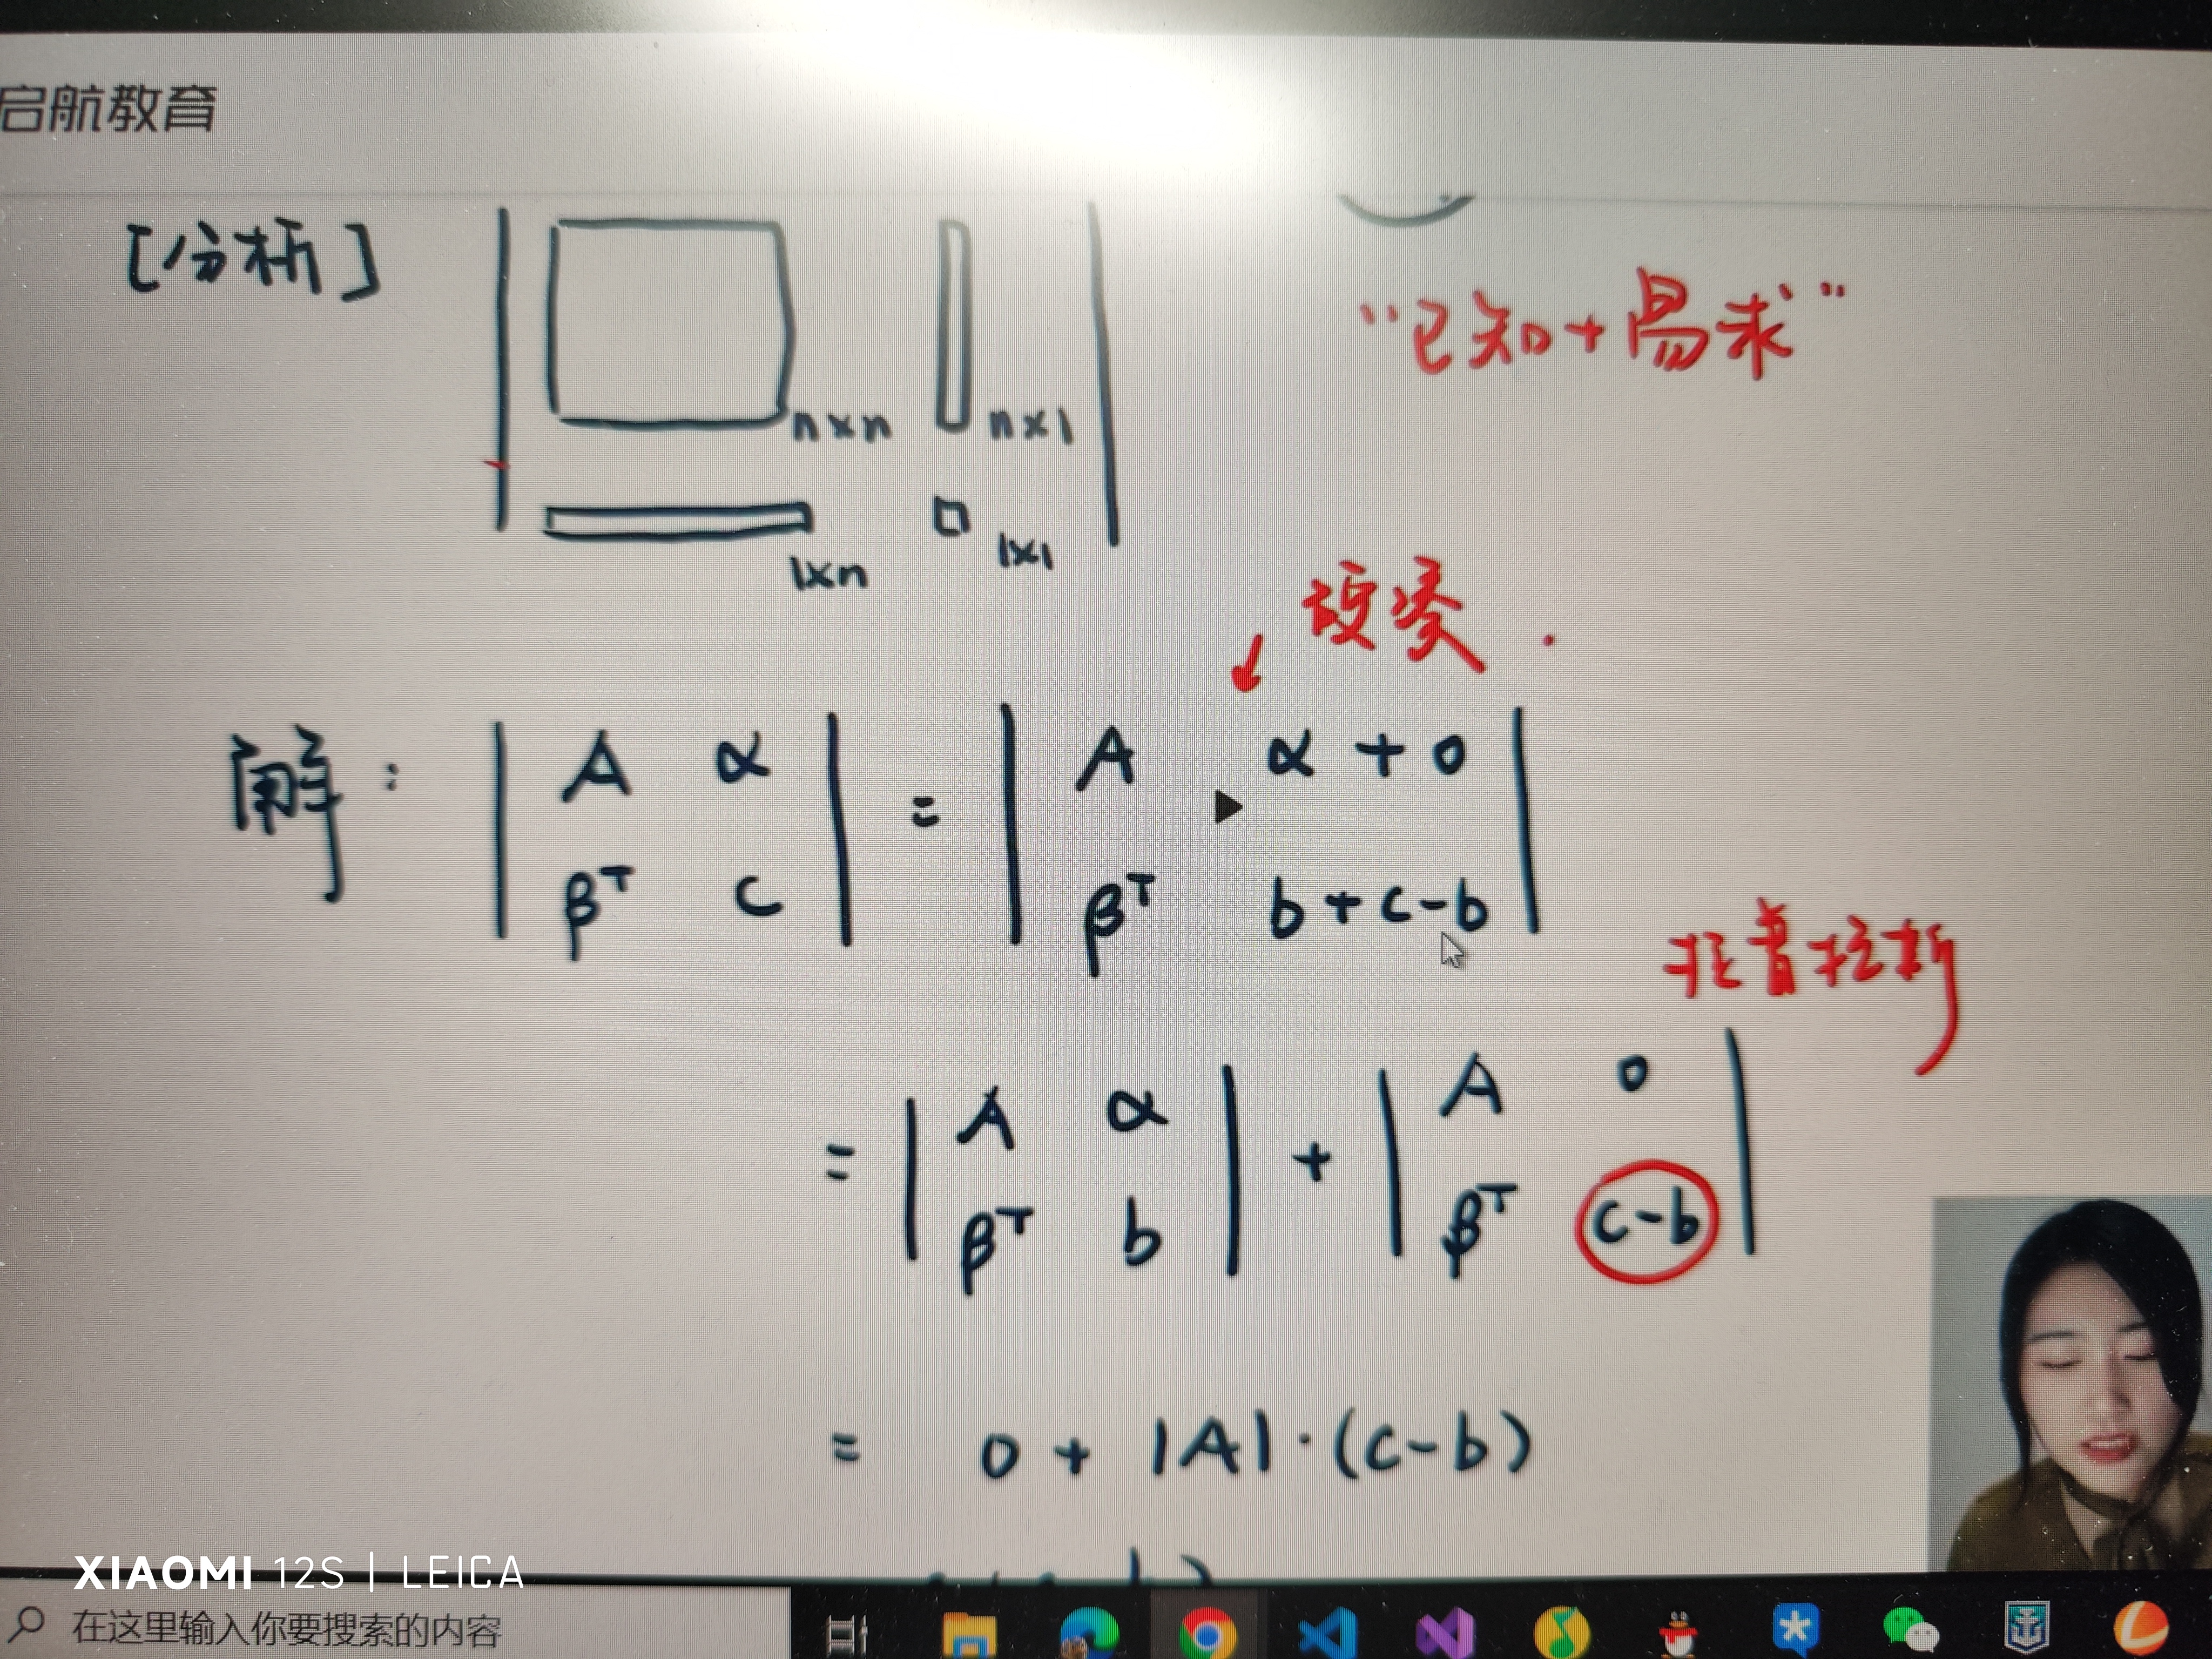 启航教育
[分析]
n×n
n×1
1×n
1×1
“已知+易求”
解: | A α | = | A α + 0 |
| β^T c | | β^T b + c-b |
= | A α | + | A 0 |
| β^T b | | β^T c-b |
= 0 + |A|·(c-b)
XIAOMI 12S | LEICA
在这里输入你要搜索的内容